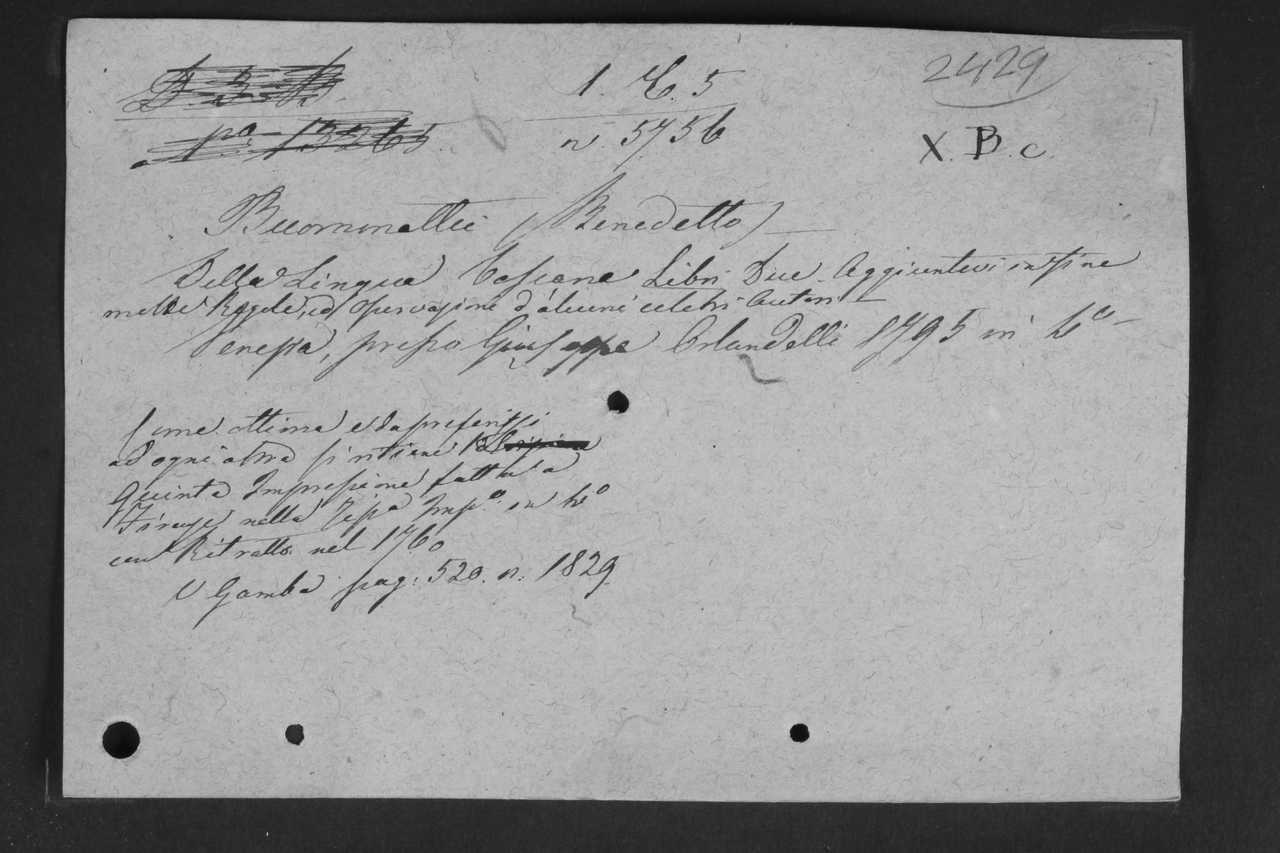 D 3. B.
1. E. 5
2429
n.o 13265.
n. 5756
X. B. c.
Buommattei (Benedetto)
Della Lingua Toscana Libri Due. Aggiuntevi in fine
molte Regole, ed Osservazioni d'alcuni celebri Autori
Venezia, presso Giuseppe Orlandelli 1795 in 4o
Come ottima e da preferirsi
ad ogni altra si ritiene la
Quinta Impressione fatta a
Firenze nella Stessa Impa. in 4o
con Ritratto nel 1760
V Gamba pag: 520. n. 1829